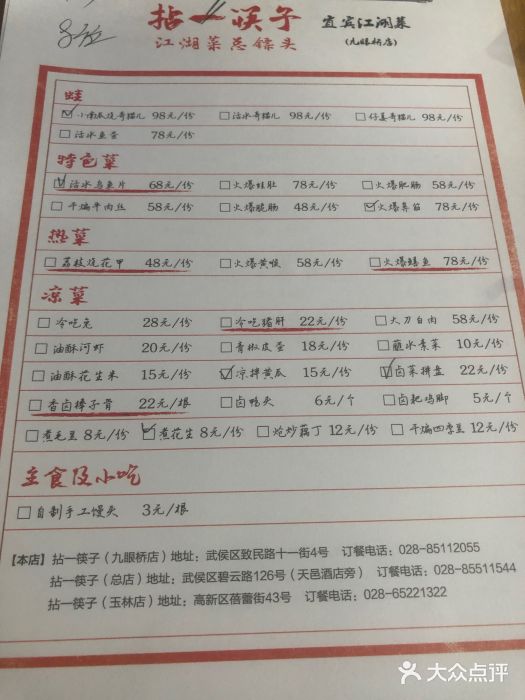 拈一筷子 宜宾江湖菜
江湖菜总镖头 (九眼桥店)
蛙
小南瓜烧哥猫儿 98元/份 活水哥猫儿 98元/份 仔姜哥猫儿 98元/份
活水鱼蛋 78元/份
特色菜
活水乌鱼片 68元/份 火爆蛙肚 78元/份 火爆肥肠 58元/份
干煸牛肉丝 58元/份 火爆脆肠 48元/份 火爆鼻筋 78元/份
热菜
荔枝烧花甲 48元/份 火爆黄喉 58元/份 火爆鳝鱼 78元/份
凉菜
冷吃兔 28元/份 冷吃猪肝 22元/份 大刀白肉 58元/份
油酥河虾 20元/份 青椒皮蛋 18元/份 蘸水素菜 10元/份
油酥花生米 15元/份 凉拌黄瓜 15元/份 卤菜拼盘 22元/份
香卤棒子骨 22元/根 卤鸭头 6元/个 卤粑鸡脚 5元/个
煮毛豆 8元/份 煮花生 8元/份 炝炒藕丁 12元/份 干煸四季豆 12元/份
主食及小吃
自制手工馒头 3元/根
【本店】拈一筷子（九眼桥店）地址：武侯区致民路十一街4号 订餐电话：028-85112055
拈一筷子（总店）地址：武侯区碧云路126号（天邑酒店旁） 订餐电话：028-85511544
拈一筷子（玉林店）地址：高新区蓓蕾街43号 订餐电话：028-65221322
大众点评